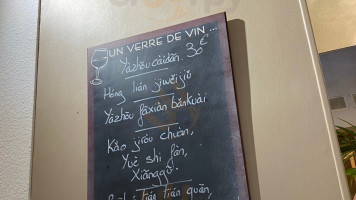 UN VERRE DE VIN...
Yàzhōu càidān. 30€
Hóng lián jīwěijiǔ
Yàzhōu fāxiàn bǎnkuài
Kǎo jīròu chuàn,
Yuè shì fàn,
Xiānggū.
tián tián quān,